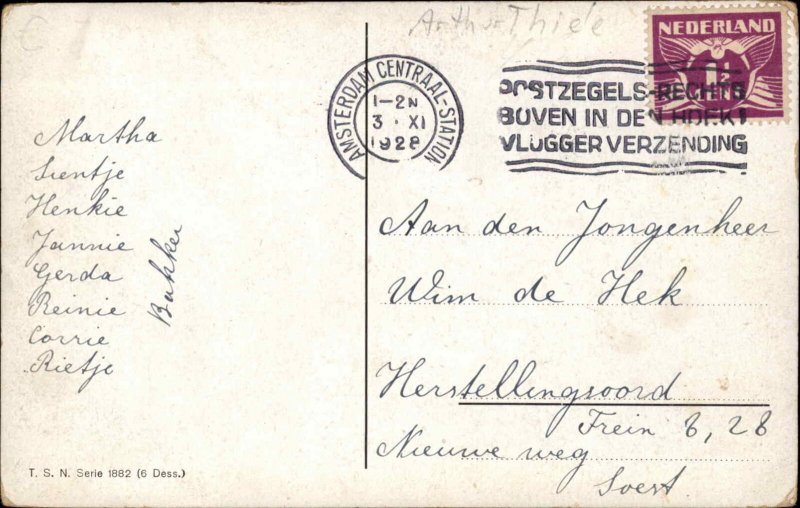 Arthur Thiele
NEDERLAND
1½
AMSTERDAM CENTRAAL-STATION
1-2N
3 · XI
1928
POSTZEGELS-RECHTS
BOVEN IN DEN HOEK!
VLUGGER VERZENDING
Martha
Sientje
Henkie
Jannie
Gerda
Reinie
Corrie
Rietje
Bakker
Aan den Jongenheer
Wim de Hek
Herstellingsoord
Trein 8,28
Nieuwe weg
Soest
T. S. N. Serie 1882 (6 Dess.)